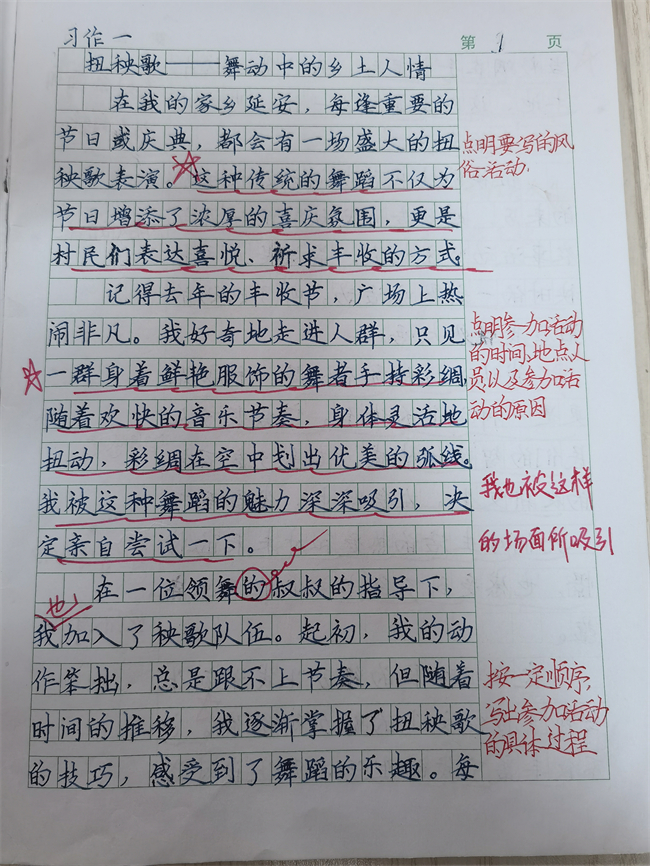 习作一
第 1 页
扭秧歌——舞动中的乡土人情
在我的家乡延安，每逢重要的
节日或庆典，都会有一场盛大的扭
秧歌表演。这种传统的舞蹈不仅为
节日增添了浓厚的喜庆氛围，更是
村民们表达喜悦、祈求丰收的方式。
点明要写的风
俗活动
记得去年的丰收节，广场上热
闹非凡。我好奇地走进人群，只见
一群身着鲜艳服饰的舞者手持彩绸，
随着欢快的音乐节奏，身体灵活地
扭动，彩绸在空中划出优美的弧线。
我被这种舞蹈的魅力深深吸引，决
定亲自尝试一下。
点明参加活动
的时间、地点、人
员以及参加活
动的原因
我也被这样
的场面所吸引
在一位领舞的叔叔的指导下，
也
我加入了秧歌队伍。起初，我的动
作笨拙，总是跟不上节奏，但随着
时间的推移，我逐渐掌握了扭秧歌
的技巧，感受到了舞蹈的乐趣。每
按一定顺序，
写出参加活动
的具体过程